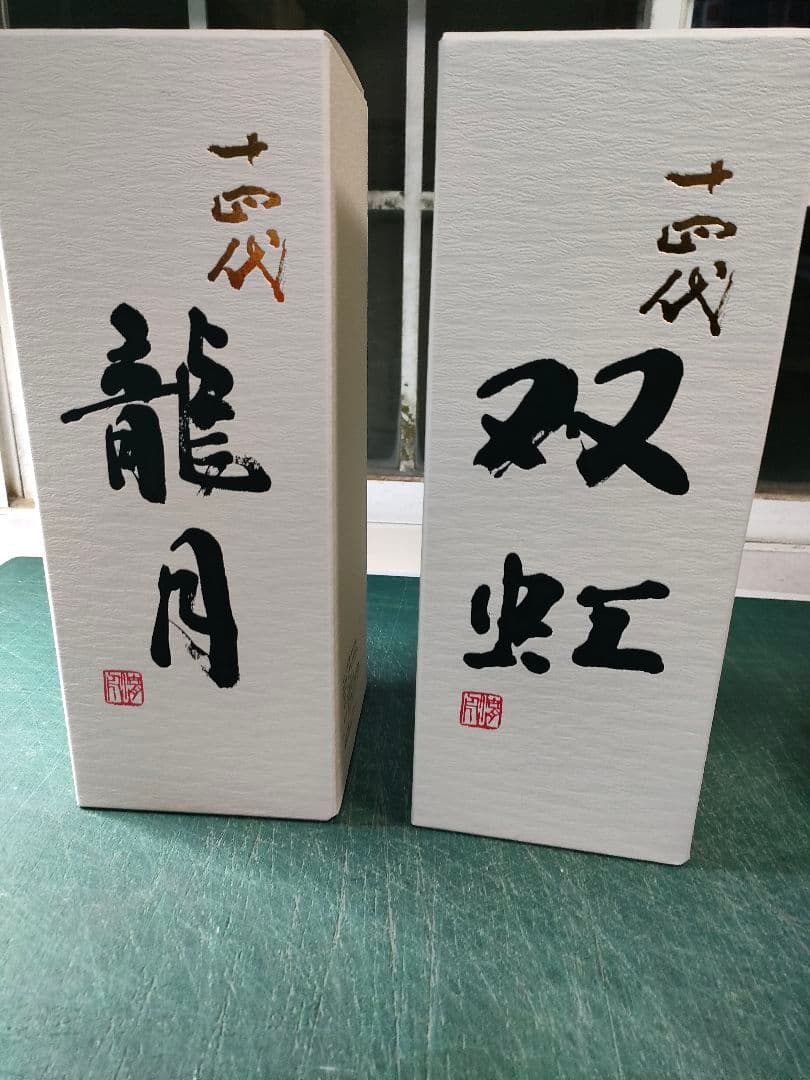 十四代
龍月
十四代
双虹